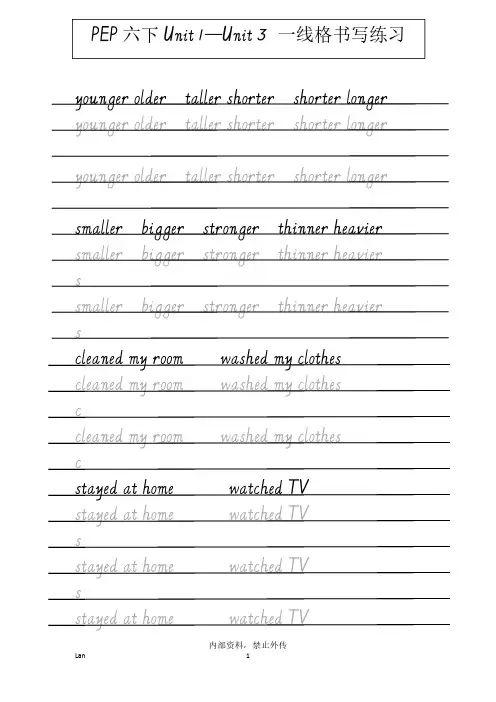 PEP 六下 Unit 1—Unit 3 一线格书写练习
younger older taller shorter shorter longer
younger older taller shorter shorter longer
younger older taller shorter shorter longer
smaller bigger stronger thinner heavier
smaller bigger stronger thinner heavier
s
smaller bigger stronger thinner heavier
s
cleaned my room washed my clothes
cleaned my room washed my clothes
c
cleaned my room washed my clothes
c
stayed at home watched TV
stayed at home watched TV
s
stayed at home watched TV
s
stayed at home watched TV
内部资料，禁止外传
Lan 1